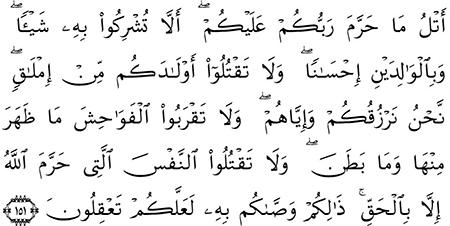 أَتْلُ مَا حَرَّمَ رَبُّكُمْ عَلَيْكُمْ ۖ أَلَّا تُشْرِكُوا۟ بِهِۦ شَيْـًٔا ۖ
وَبِٱلْوَٰلِدَيْنِ إِحْسَـٰنًا ۖ وَلَا تَقْتُلُوٓا۟ أَوْلَـٰدَكُم مِّنْ إِمْلَـٰقٍ ۖ
نَّحْنُ نَرْزُقُكُمْ وَإِيَّاهُمْ ۖ وَلَا تَقْرَبُوا۟ ٱلْفَوَٰحِشَ مَا ظَهَرَ
مِنْهَا وَمَا بَطَنَ ۖ وَلَا تَقْتُلُوا۟ ٱلنَّفْسَ ٱلَّتِى حَرَّمَ ٱللَّهُ
إِلَّا بِٱلْحَقِّ ۚ ذَٰلِكُمْ وَصَّىٰكُم بِهِۦ لَعَلَّكُمْ تَعْقِلُونَ ١٥١